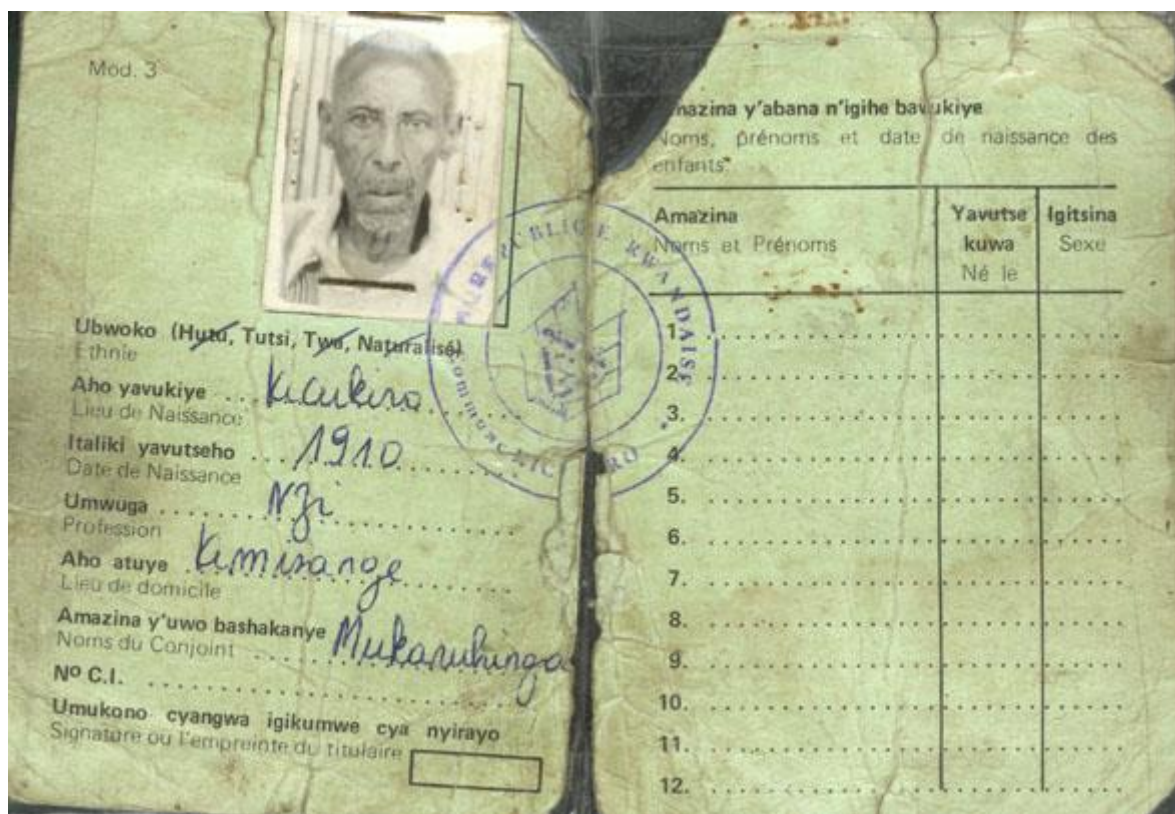 Mod. 3
Ubwoko (Hutu, Tutsi, Twa, Naturalisé)
Ethnie
Aho yavukiye Kicukiro
Lieu de Naissance
Italiki yavutseho 1910
Date de Naissance
Umwuga
Profession
Aho atuye
Lieu de domicile
Amazina y'uwo bashakanye
Noms du Conjoint
Nº C.I.
Umukono cyangwa igikumwe cya nyirayo
Signature ou l'empreinte du titulaire
REPUBLIQUE RWANDAISE
y'abana n'igihe bavukiye
Noms, prénoms et date de naissance des
enfants.
Amazina
Noms et Prénoms
Yavutse
kuwa
Né le
Igitsina
Sexe
1.
2.
3.
4.
5.
6.
7.
8.
9.
10.
11.
12.